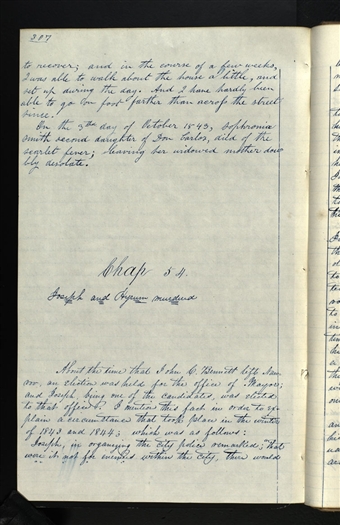 207
to recover; and in the course of a few weeks,
I was able to walk about the house a little, and
set up during the day. And I have hardly been
able to go on foot farther than acrofs the street
since.
On the 3rd day of October 1843, Sophronia
Smith second daughter of Don Carlos, died of the
scarlet fever; leaving her widowed mother dou
bly desolate.
Chap 54.
Joseph and Hyrum murdered
About the time that John C. Bennett left Nau
voo, an election was held for the office of Mayor;
and Joseph, being one of the candidates, was elected
to that office. I mention this fact in order to ex
plain a circumstance that took place in the winter
of 1843 and 1844; which was as follows:
Joseph, in organizing the city police remarked; "that
were it not for enemies within the city, there would